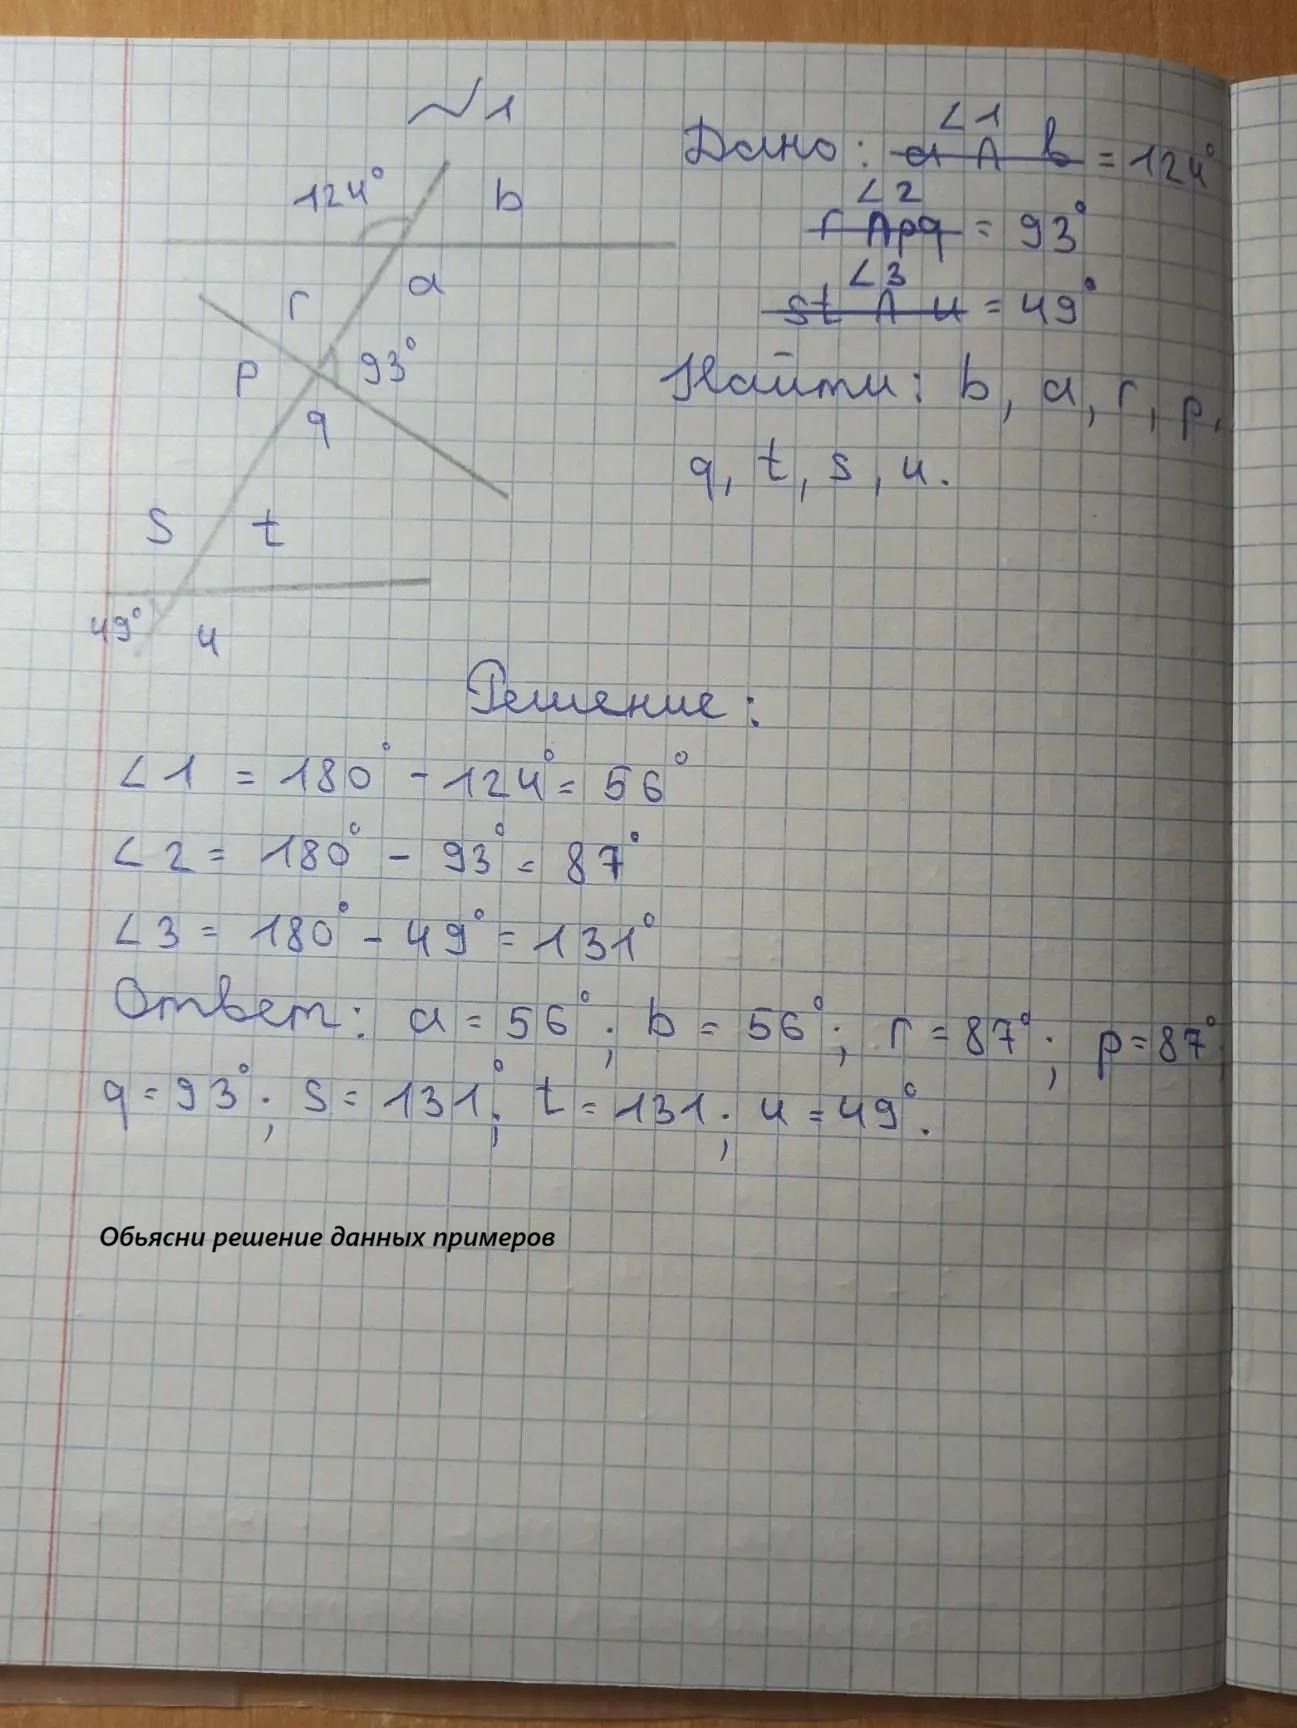 №1
Дано: ∠1 = 124°
∠2 = 93°
∠3 = 49°
Найти: b, a, r, p,
q, t, s, u.
124° b
r a
p 93°
q
s t
49° u
Решение:
∠1 = 180° - 124° = 56°
∠2 = 180° - 93° = 87°
∠3 = 180° - 49° = 131°
Ответ: a = 56°; b = 56°; r = 87°; p = 87°;
q = 93°; s = 131°; t = 131; u = 49°.
Обьясни решение данных примеров